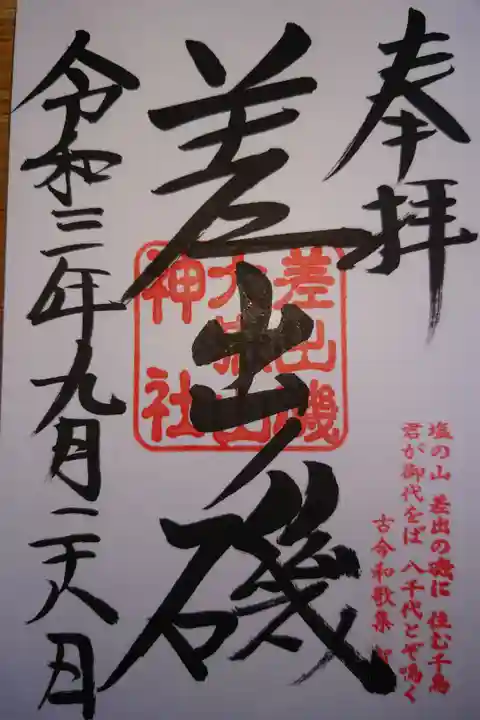 奉拝
差出ノ磯
差出磯
大嶽山
神社
令和三年九月二十八日
塩の山 差出の磯に 住む千鳥
君が御代をば 八千代とぞ鳴く
古今和歌集 賀